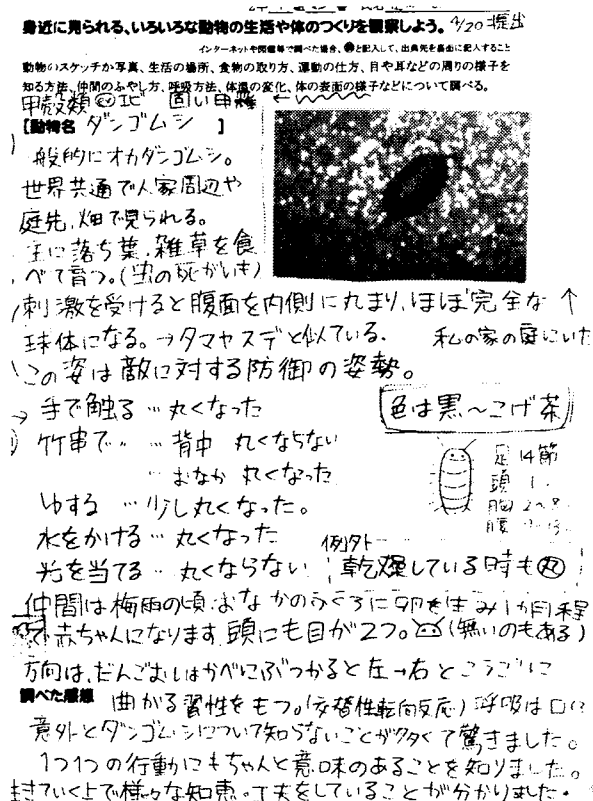 身近に見られる、いろいろな動物の生活や体のつくりを観察しよう。 4/20提出
インターネットや図鑑等で調べた場合、と記入して、出典先を裏面に記入すること
動物のスケッチか写真、生活の場所、食物の取り方、運動の仕方、目や耳などの周りの様子を
知る方法、仲間のふやし方、呼吸方法、体温の変化、体の表面の様子などについて調べる。
甲殻類 エビ 固い甲羅 ←
【動物名 ダンゴムシ 】
一般的にオカダンゴムシ。
世界共通で人家周辺や
庭先、畑で見られる。
主に落ち葉、雑草を食
べて育つ。(虫の死がいも)
刺激を受けると腹面を内側に丸まり、ほぼ完全な ↑
球体になる。→タマヤスデと似ている. 私の家の庭にいた
この姿は敵に対する防御の姿勢。
→ 手で触る … 丸くなった
色は黒〜こげ茶
竹串で… 背中 丸くならない
… おなか 丸くなった
足 14節
頭 1
胸
腹
ゆする … 少し丸くなった。
水をかける … 丸くなった
光を当てる … 丸くならない
例外
乾燥している時も丸
仲間は梅雨の頃、おなかのふくろに卵を生み1か月程
で赤ちゃんになります。頭にも目が2つ。(無いのもある)
方向は、だんごむしはかべにぶつかると左→右とこうごに
調べた感想 曲がる習性をもつ。(交替性転向反応) 呼吸は
意外とダンゴムシについて知らないことが多くて驚きました。
1つ1つの行動にもちゃんと意味のあることを知りました。
生きていく上で様々な知恵・工夫をしていることが分かりました。